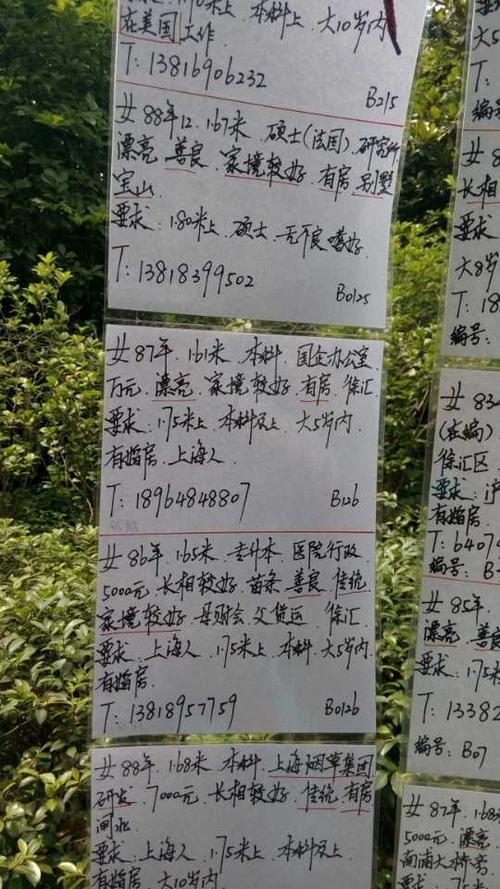 米上 本科上 大10岁内
在美国工作
T:13816906232
B215
女88年.12.1.67米.硕士(法国).研究所
漂亮.善良.家境较好.有房.别墅
宝山
要求:1.80米上.硕士.无不良嗜好.
T:13818399502
B0125
女87年.1.61米.本科.国企办公室
万元.漂亮.家境较好.有房.徐汇
要求:1.75米上.本科及上.大5岁内
有婚房.上海人.
T:18964848807
B126
女86年.1.65米.专升本.医院行政
5000元.长相较好.苗条.善良.传统.
家境较好.母财会.父货运.徐汇
要求:上海人.1.75米上.本科.大5岁内
有婚房.
T:13818957759
B0126
女88年.1.68米.本科.上海烟草集团
研发.7000元.长相较好.传统.有房
闸北
要求:上海人.1.75米上.本科及上
有婚房 大10岁内
要求
大5
编号
女8
长相
要求:
大8岁
T:18
编号:
女834
(在编)
徐汇区
要求:沪
有婚房
T:64074
编号:B
女85年.
漂亮 善良
要求:1.75米
T:13382
编号:B07
女87年.1.68
5000元.漂亮
要求: